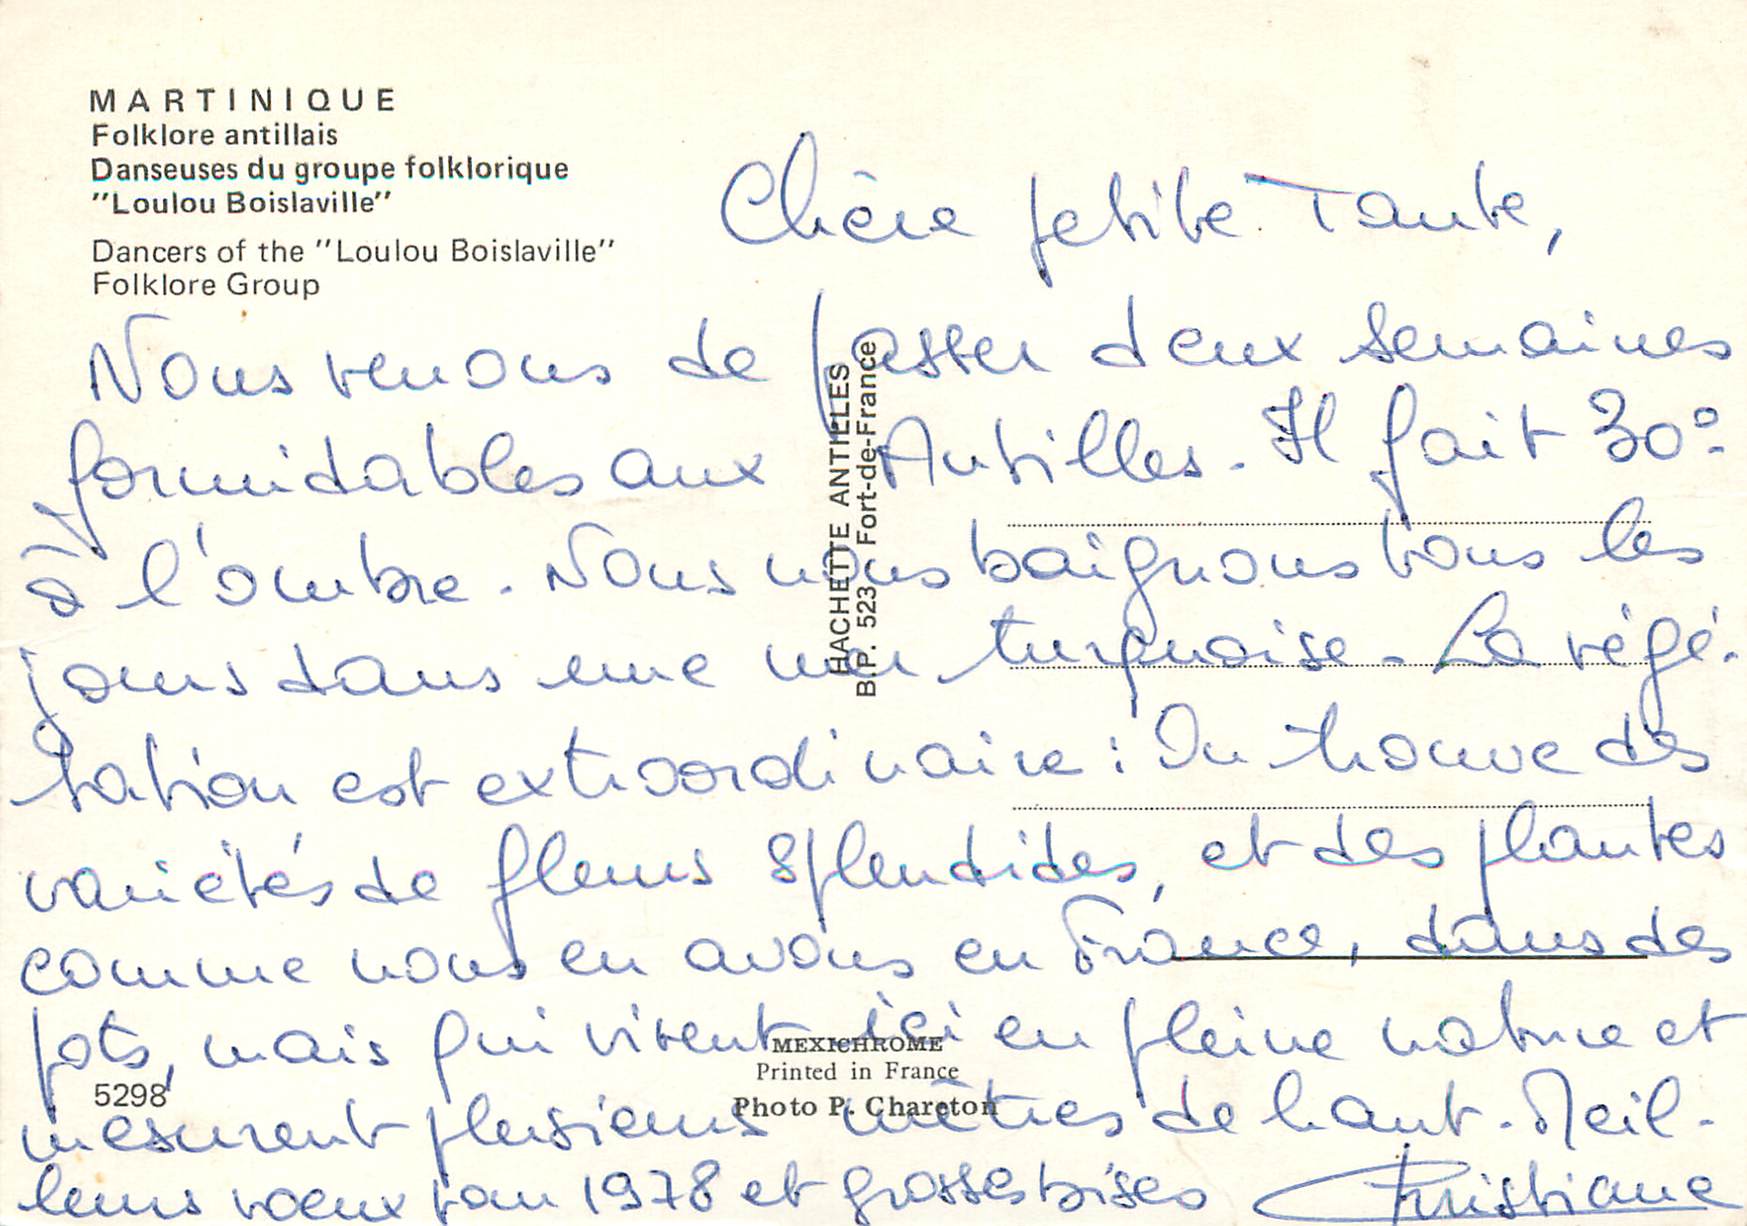 MARTINIQUE
Folklore antillais
Danseuses du groupe folklorique
"Loulou Boislaville"
Dancers of the "Loulou Boislaville"
Folklore Group
Chère petite Tante,
Nous venons de passer deux semaines
formidables aux Antilles. Il fait 30°
à l'ombre. Nous nous baignons tous les
jours dans une mer turquoise. La végé-
tation est extraordinaire : On trouve des
variétés de fleurs splendides, et des plantes
comme nous en avons en France, dans des
pots, mais qui vivent ici en pleine nature et
mesurent plusieurs mètres de haut. Meil-
leurs voeux pour 1978 et grosses bises Christiane
HACHETTE ANTILLES
B.P. 523 Fort-de-France
5298
MEXICHROME
Printed in France
Photo P. Chareton